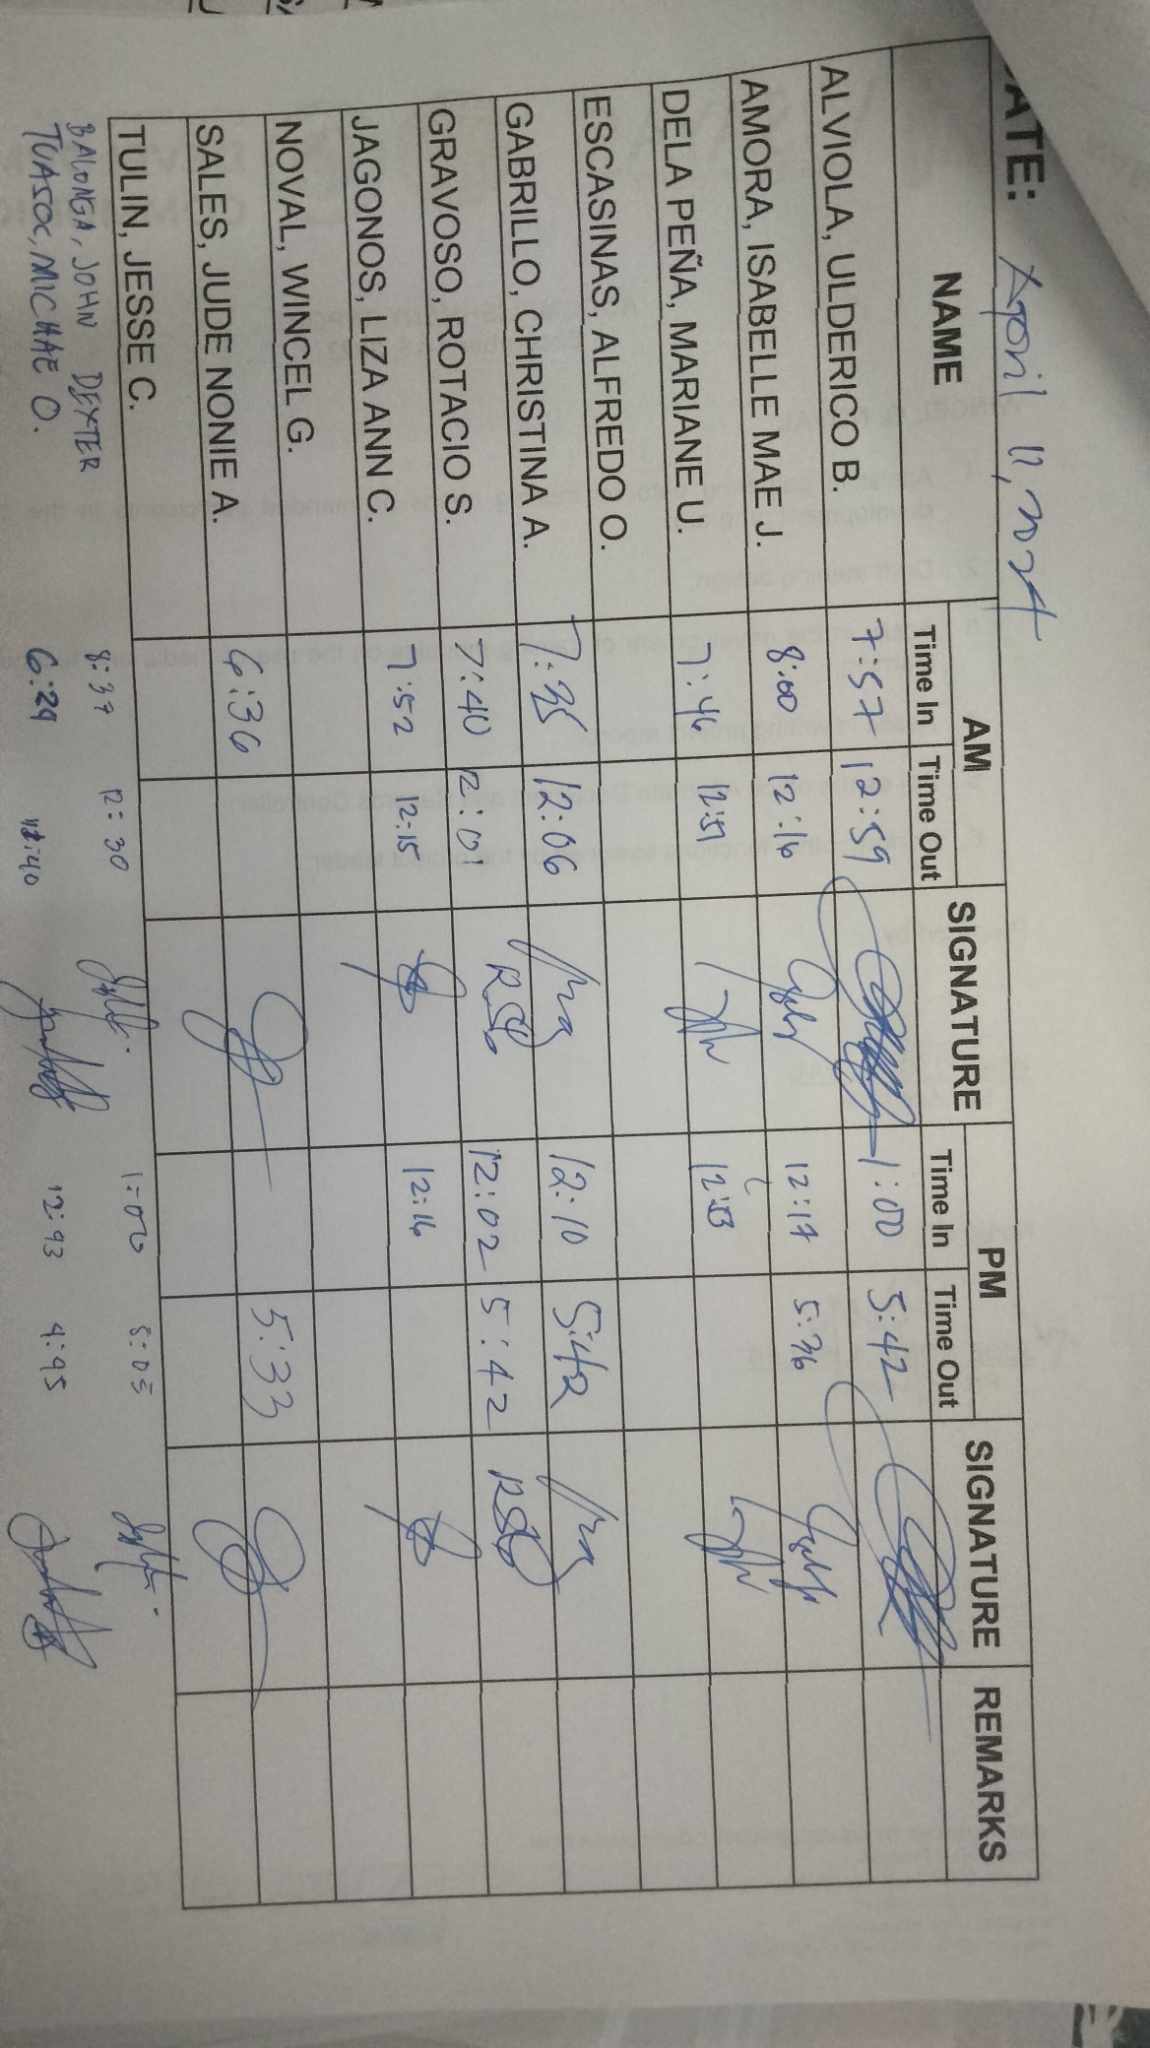 DATE: April 11, 2024
NAME AM SIGNATURE PM SIGNATURE REMARKS
Time In Time Out Time In Time Out
ALVIOLA, ULDERICO B. 7:57 12:59 1:00 5:42
AMORA, ISABELLE MAE J. 8:00 12:16 12:17 5:36
DELA PEÑA, MARIANE U. 7:46 12:51 12:53
ESCASINAS, ALFREDO O.
GABRILLO, CHRISTINA A. 7:35 12:06 12:10 5:42
GRAVOSO, ROTACIO S. 7:40 12:01 12:02 5:42
JAGONOS, LIZA ANN C. 7:52 12:15 12:16
NOVAL, WINCEL G.
SALES, JUDE NONIE A. 6:36 5:33
TULIN, JESSE C.
BALONGA, JOHN DEXTER 8:37 12:30 1:00 5:05
TUASOC, MICHAE O. 6:29 12:40 12:43 4:45